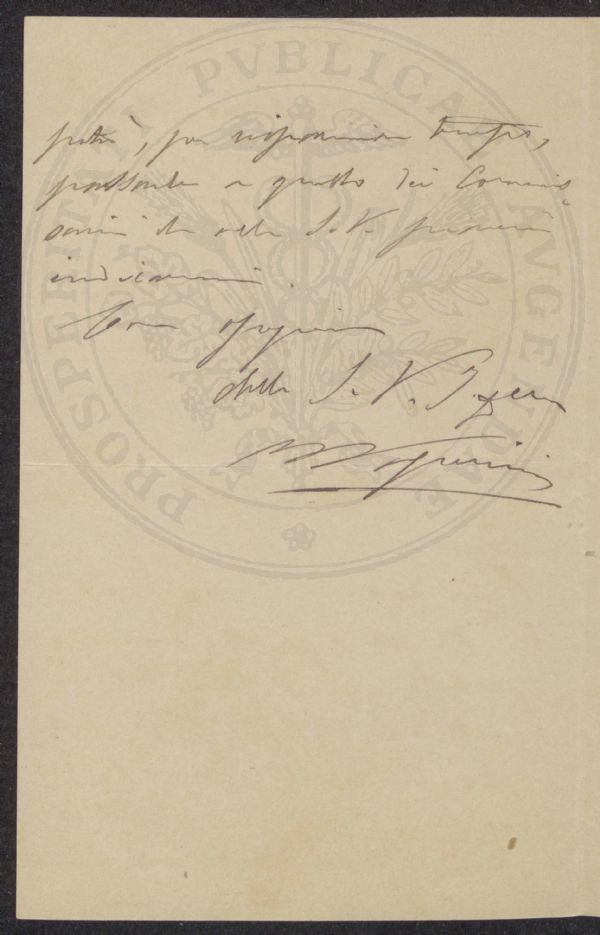 PROSPERITATI PVBLICAE AVGENDAE
potrà, per risparmiar tempo,
passarla a quello dei Commis-
sari che alla S. V. piacerà
indicarmi.
Con ossequio
della S. V. I.